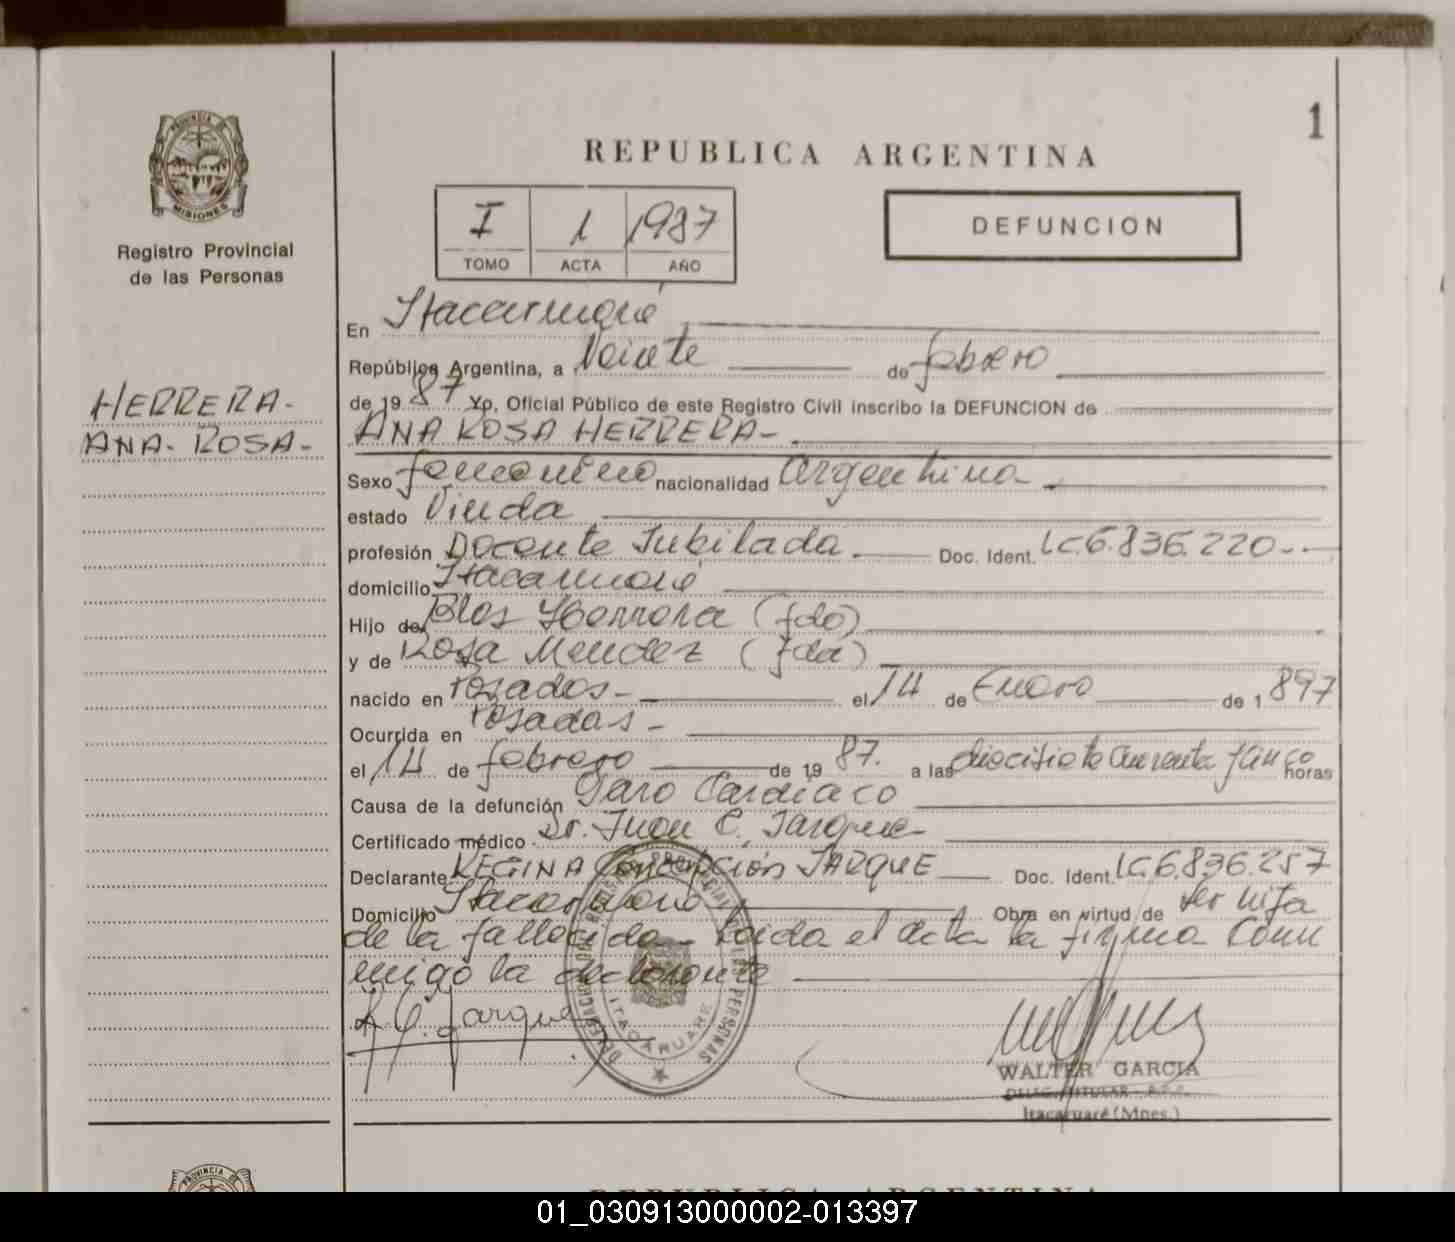 1
PROVINCIA
MISIONES
Registro Provincial
de las Personas
REPUBLICA ARGENTINA
I 1 1987
TOMO ACTA AÑO
DEFUNCION
HERRERA-
ANA-ROSA-
En Itacaruaré
República Argentina, a Veinte de febrero
de 1987 Yo, Oficial Público de este Registro Civil inscribo la DEFUNCION de
ANA ROSA HERRERA-.
Sexo femenino nacionalidad Argentina
estado Viuda
profesión Docente Jubilada. Doc. Ident. LC.6.836.220--
domicilio Itacaruaré
Hijo de Blas Herrera (fdo)
y de Rosa Mendez (fda)
nacido en Posadas- el 14 de Enero de 1897
Ocurrida en Posadas-
el 14 de febrero de 1987. a las diecisiete cuarenta y cinco horas
Causa de la defunción Paro Cardíaco
Certificado médico Dr. Juan C. Jarque
Declarante REGINA Concepción JARQUE Doc. Ident. LC.6.836.257
Domicilio Itacaruaré Obra en virtud de ser hija
de la fallecida - Leida el acta la firma Con
migo la declarante
R.C. Jarque
ITACARUARE
WALTER GARCIA
DELEG. TITULAR - R.P.P.
Itacaruaré (Mnes.)
PROVINCIA
REPUBLICA ARGENTINA
01_030913000002-013397